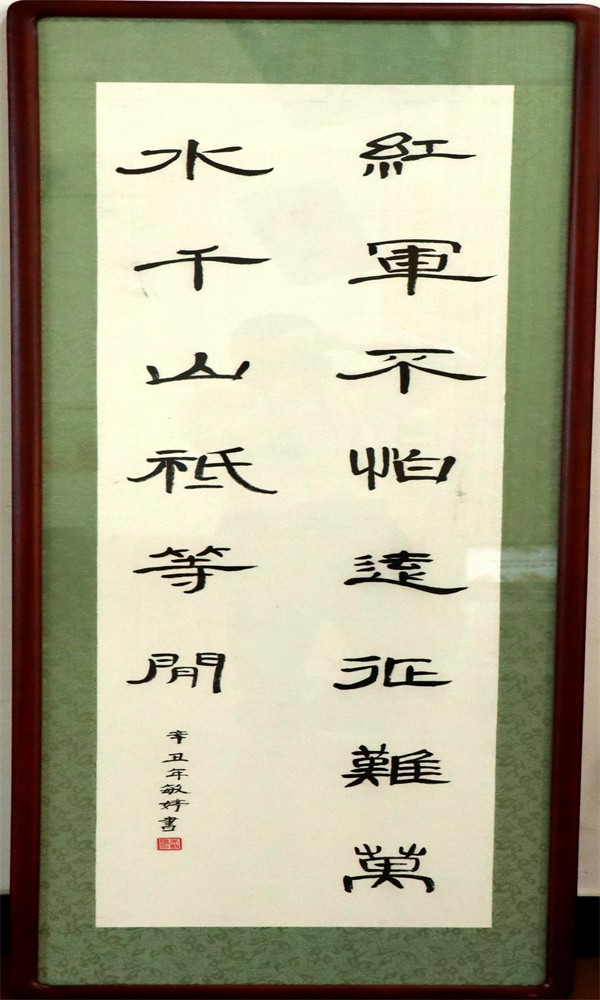 紅軍不怕遠征難萬
水千山祗等閒
辛丑年敏婷書